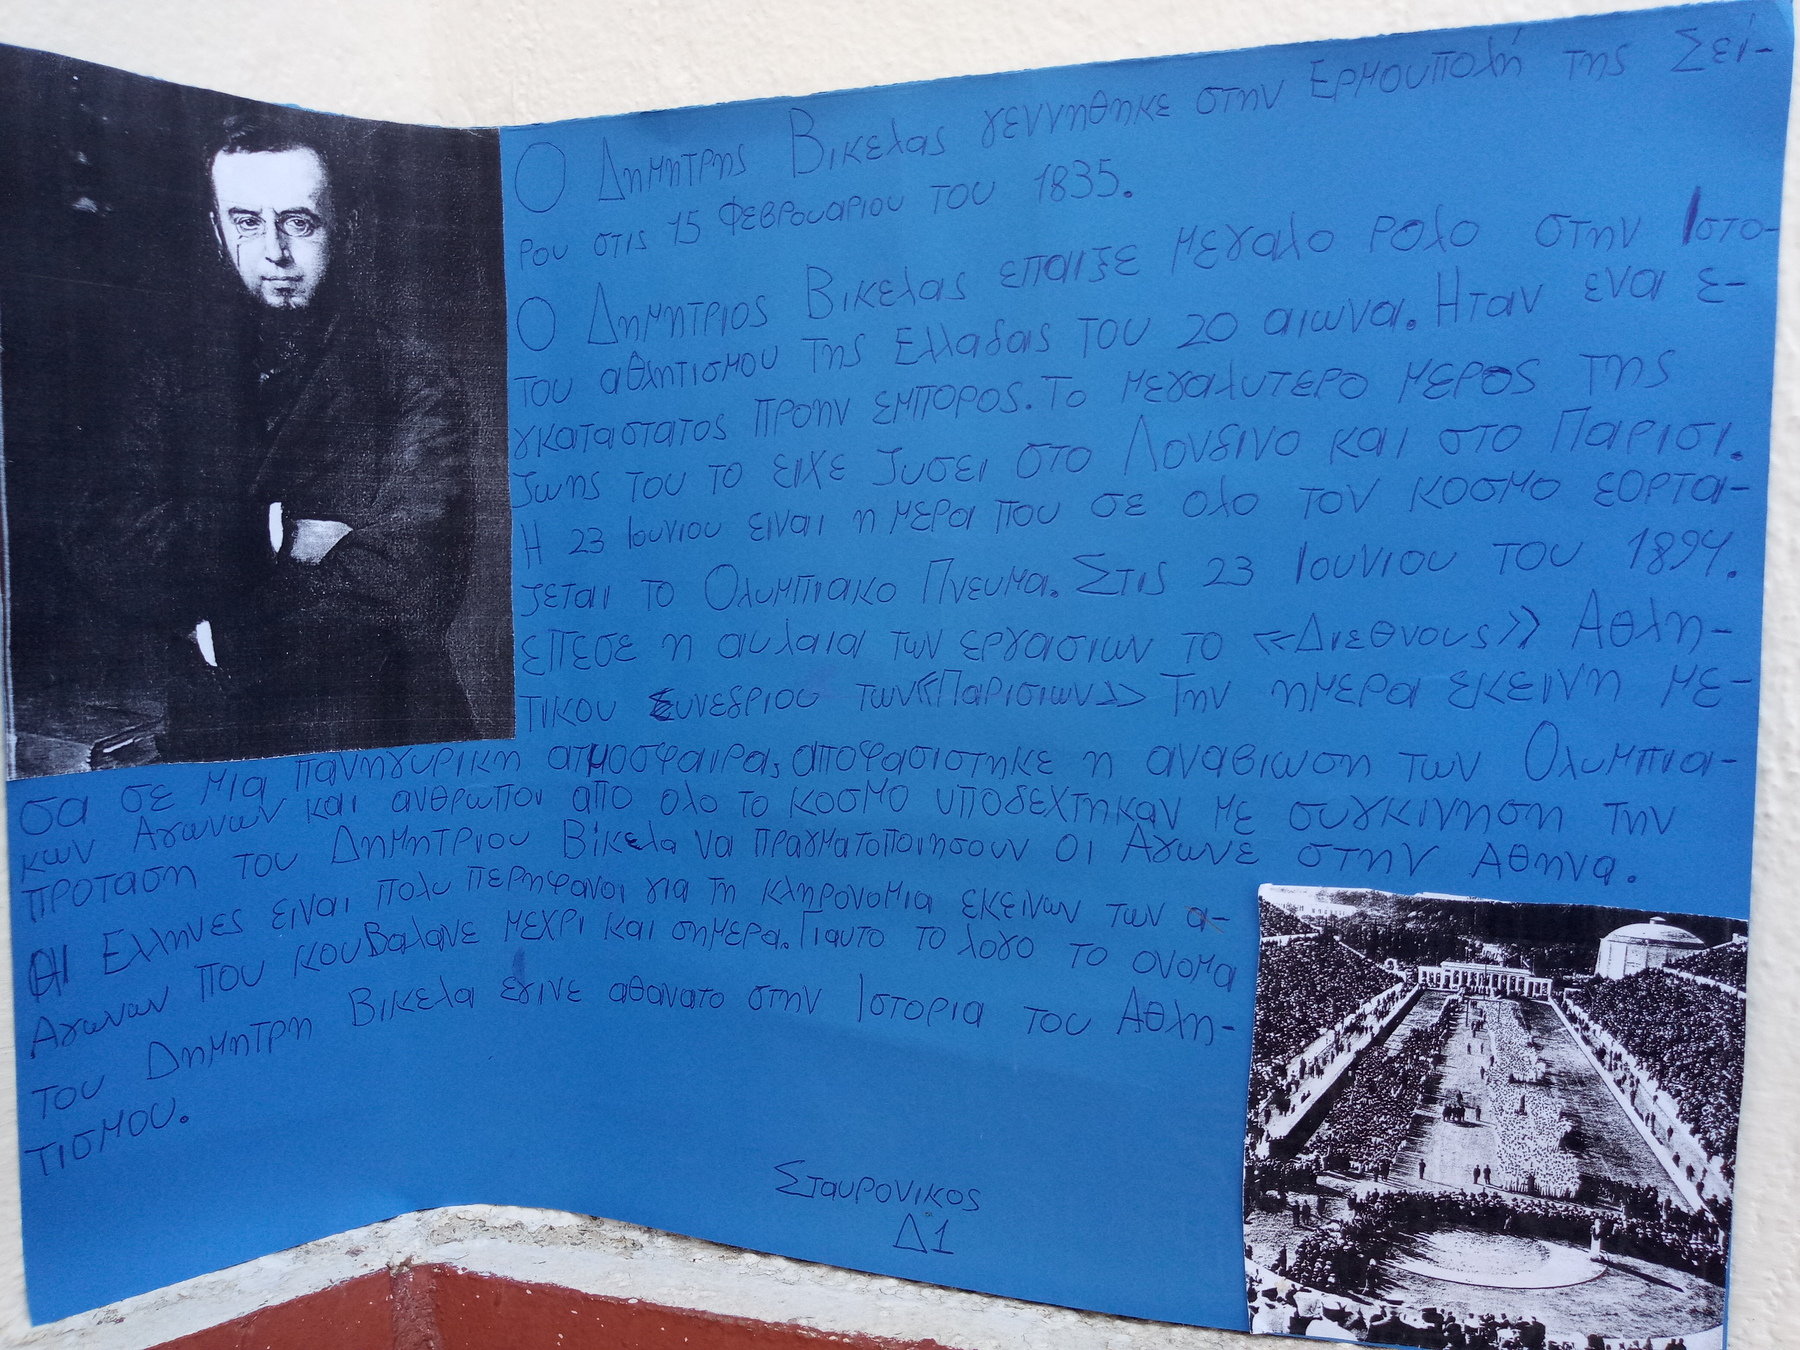 Ο Δημητρης Βικελας γεννηθηκε στην Ερμουπολή της Σεί-
ρου στις 15 Φεβρουαριου του 1835.
Ο Δημητριος Βικελας επαιξε μεγαλο ρολο στην Ιστο-
του αθλητισμου της Ελλαδας του 20 αιωνα. Ηταν ενα ε-
γκαταστατος πρωην εμπορος. Το μεγαλυτερο μερος της
ζωης του το ειχε ζυσει στο Λονδινο και στο Παρισι.
Η 23 Ιουνιου ειναι η μερα που σε ολο τον κοσμο εορτα-
ζεται το Ολυμπιακο Πνευμα. Στις 23 Ιουνιου του 1894.
επεσε η αυλαια των εργασιων το «Διεθνους» Αθλη-
τικου Συνεδριου των «Παρισιων» Την ημερα εκεινη με-
σα σε μια πανηγυρικη ατμοσφαιρα, αποφασιστηκε η αναβιωση των Ολυμπια-
κων Αγωνων και ανθρωποι απο ολο το κοσμο υποδεχτηκαν με συγκινηση την
προταση του Δημητριου Βίκελα να πραγματοποιησουν οι Αγωνε στην Αθηνα.
Οι Ελληνες ειναι πολυ περηφανοι για τη κληρονομια εκεινων των α-
Αγωνων που κουβαλανε μεχρι και σημερα. Γιαυτο το λογο το ονομα
του Δημητρη Βικελα εγινε αθανατο στην Ιστορια του Αθλη-
τισμου.
Σταυρονικος
Δ1